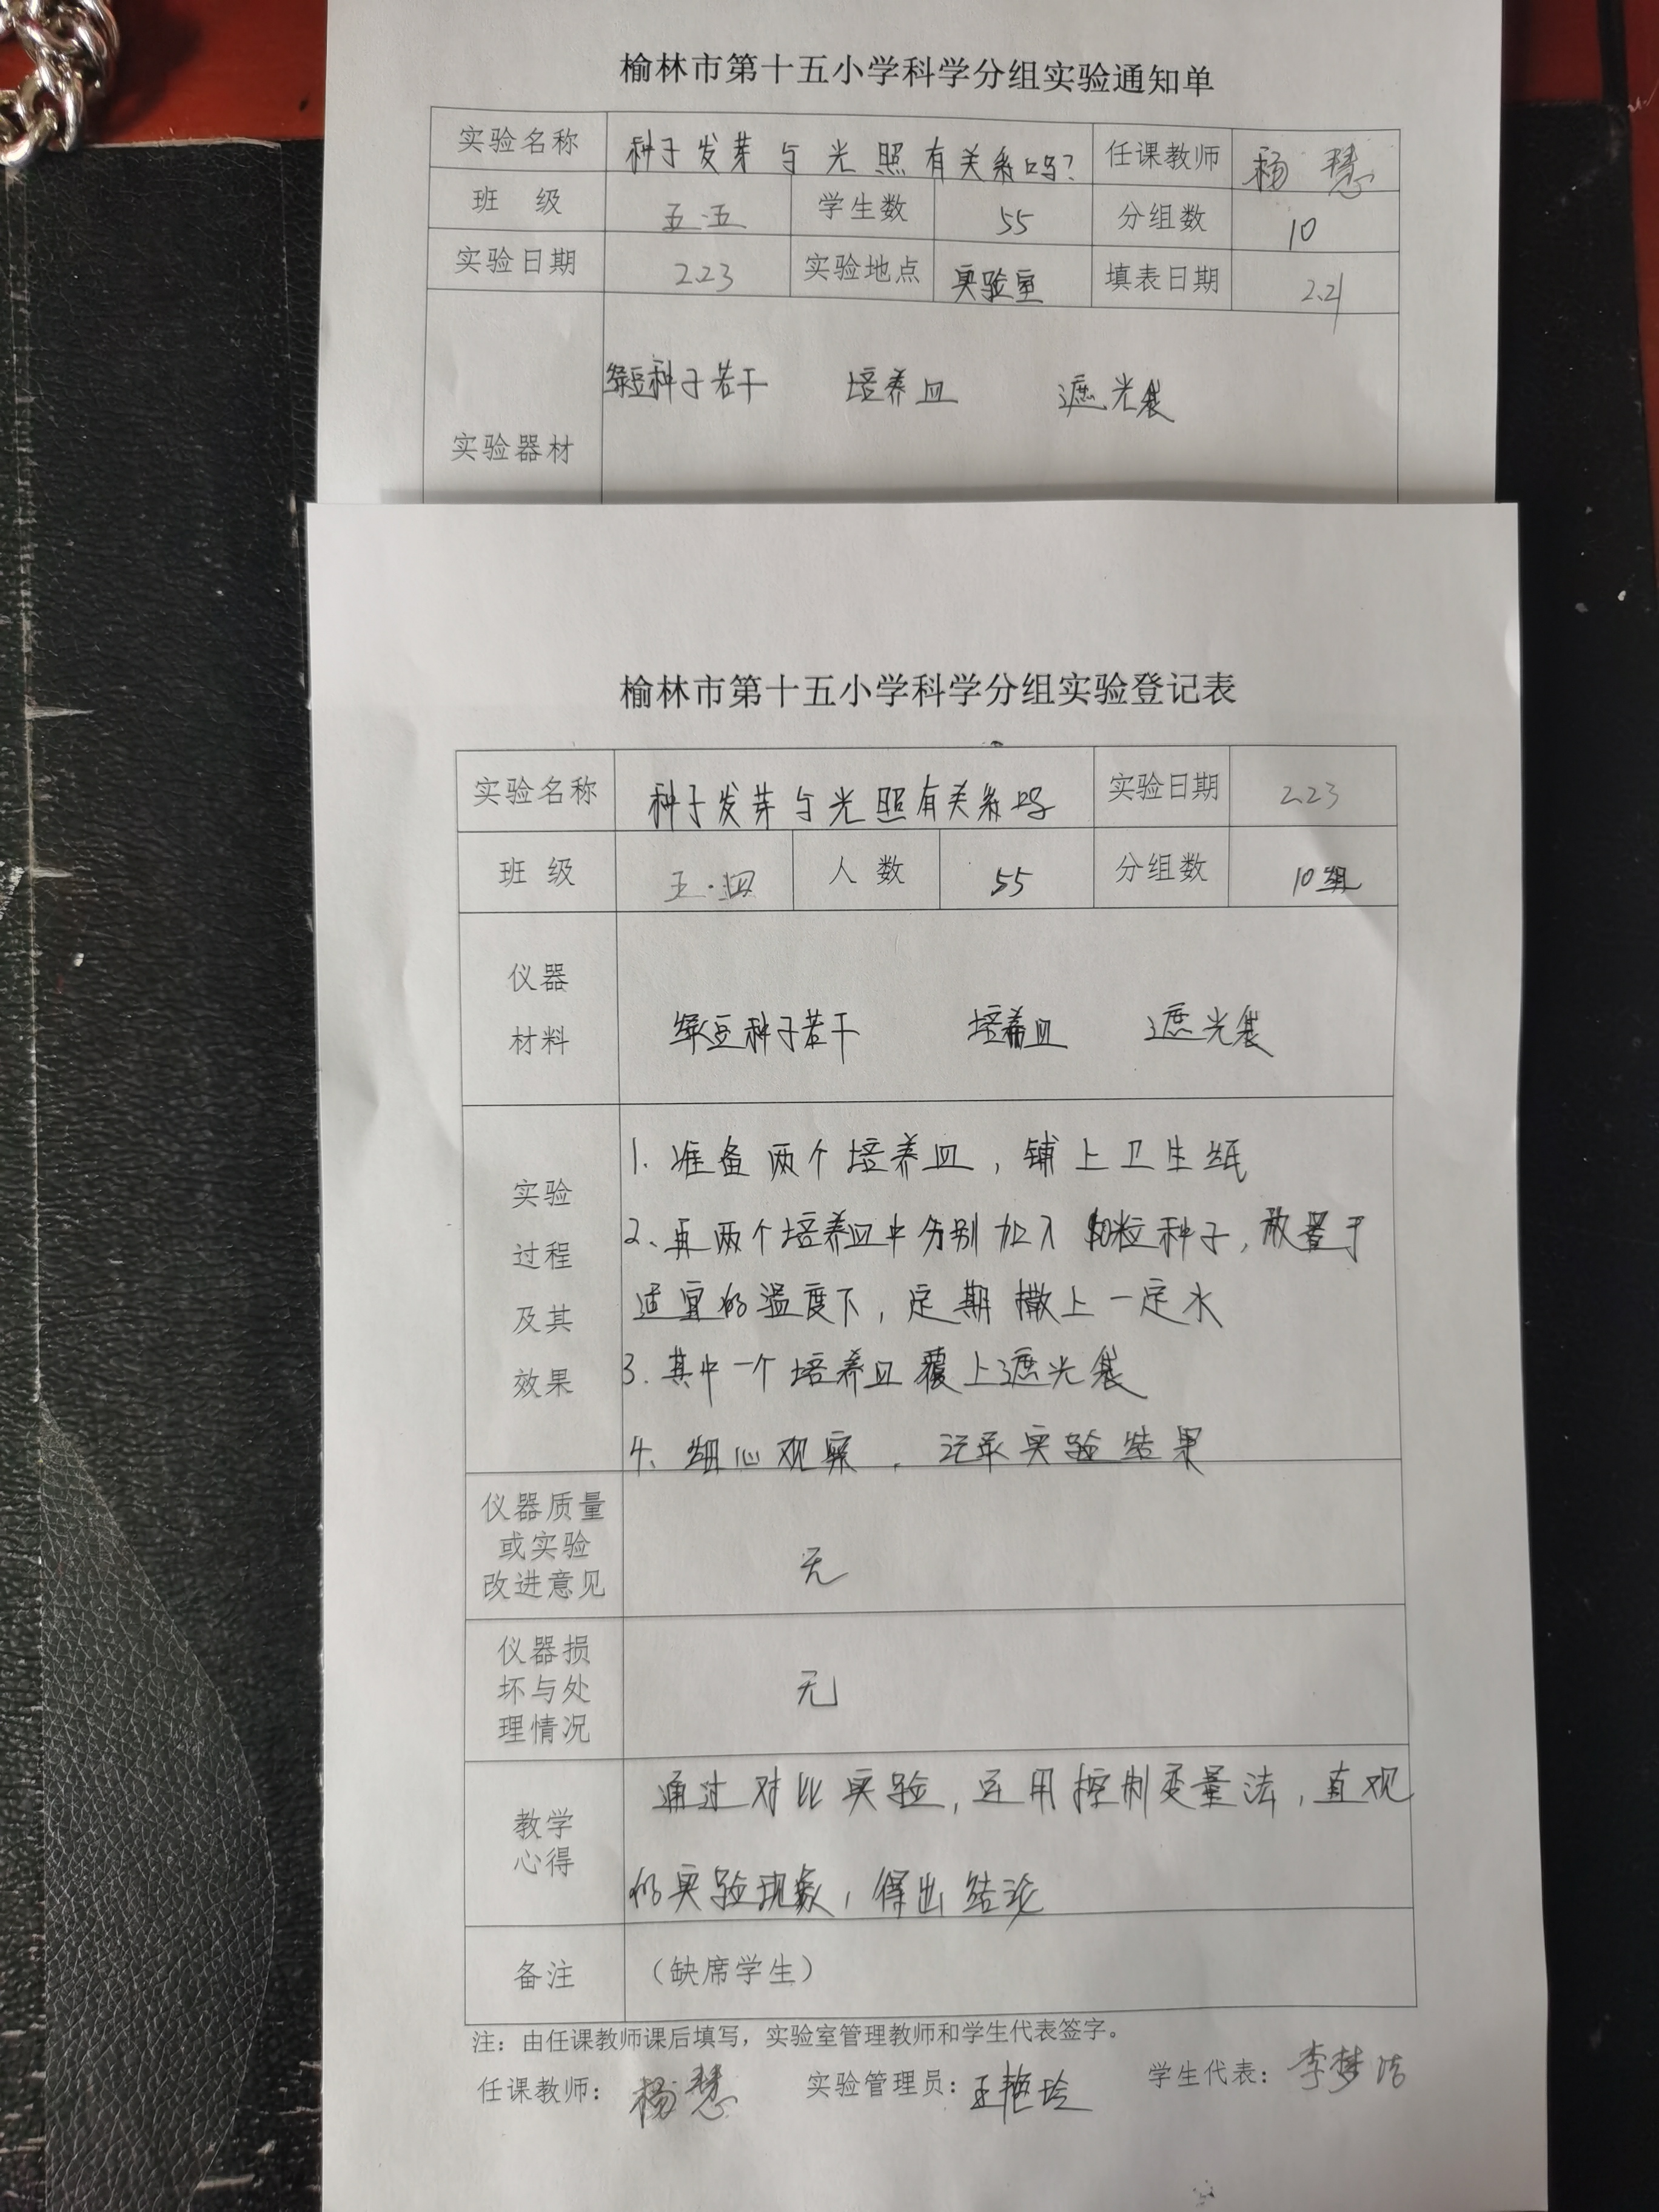 榆林市第十五小学科学分组实验通知单
实验名称 种子发芽与光照有关系吗? 任课教师 杨慧
班 级 五.五 学生数 55 分组数 10
实验日期 2.23 实验地点 实验室 填表日期 2.21
绿豆种子若干 培养皿 遮光袋
实验器材
榆林市第十五小学科学分组实验登记表
实验名称 种子发芽与光照有关系吗 实验日期 2.23
班 级 五.四 人 数 55 分组数 10组
仪器
材料
绿豆种子若干 培养皿 遮光袋
实验
过程
及其
效果
1. 准备两个培养皿,铺上卫生纸
2、再两个培养皿中分别加入10粒种子,放置于
适宜的温度下,定期撒上一定水
3. 其中一个培养皿覆上遮光袋
4、细心观察,记录实验结果
仪器质量
或实验
改进意见
无
仪器损
坏与处
理情况
无
教学
心得
通过对比实验,运用控制变量法,直观
的实验现象,得出结论
备注 (缺席学生)
注:由任课教师课后填写,实验室管理教师和学生代表签字。
任课教师: 杨慧 实验管理员: 王艳玲 学生代表: 李梦洁